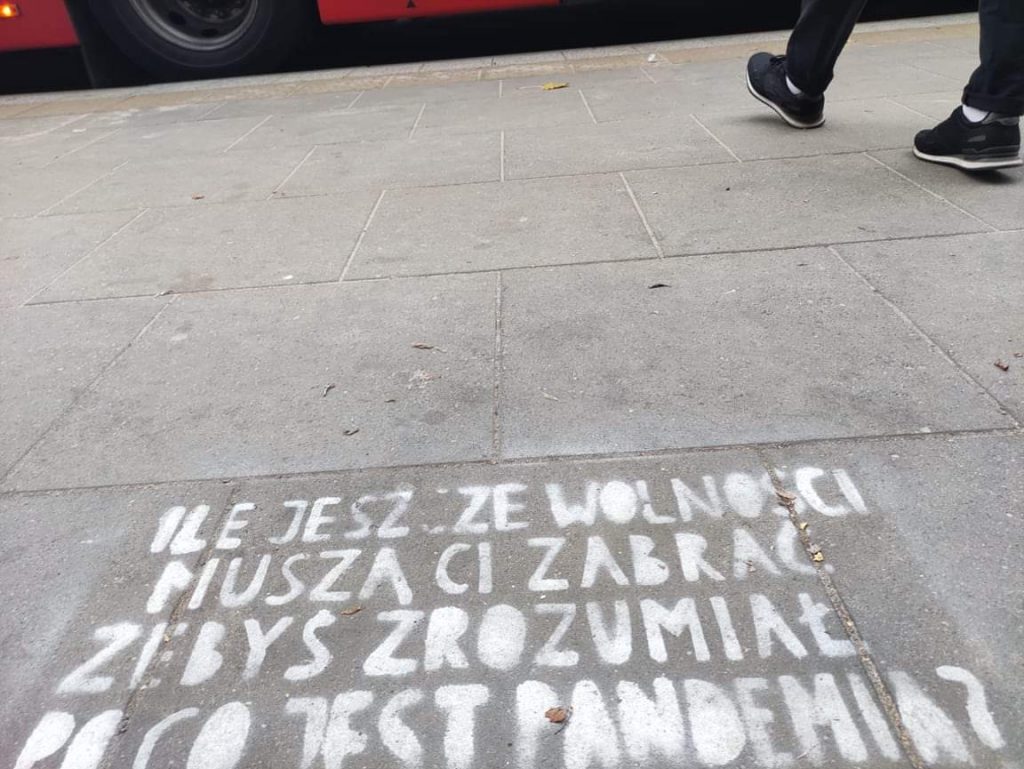 ILE JESZCZE WOLNOŚCI
MUSZĄ CI ZABRAĆ
ŻEBYŚ ZROZUMIAŁ
PO CO JEST PANDEMIA?